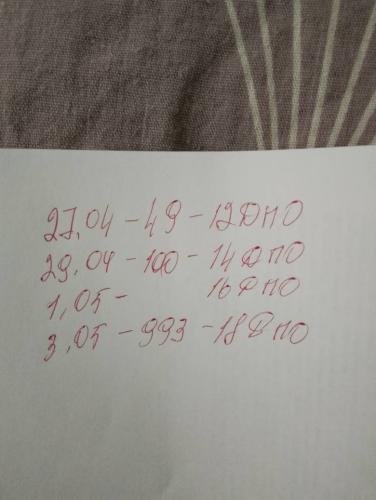 27,04 - 49 - 12ДПО
29,04 - 100 - 14ДПО
1,05 - 16ДПО
3,05 - 993 - 18ДПО